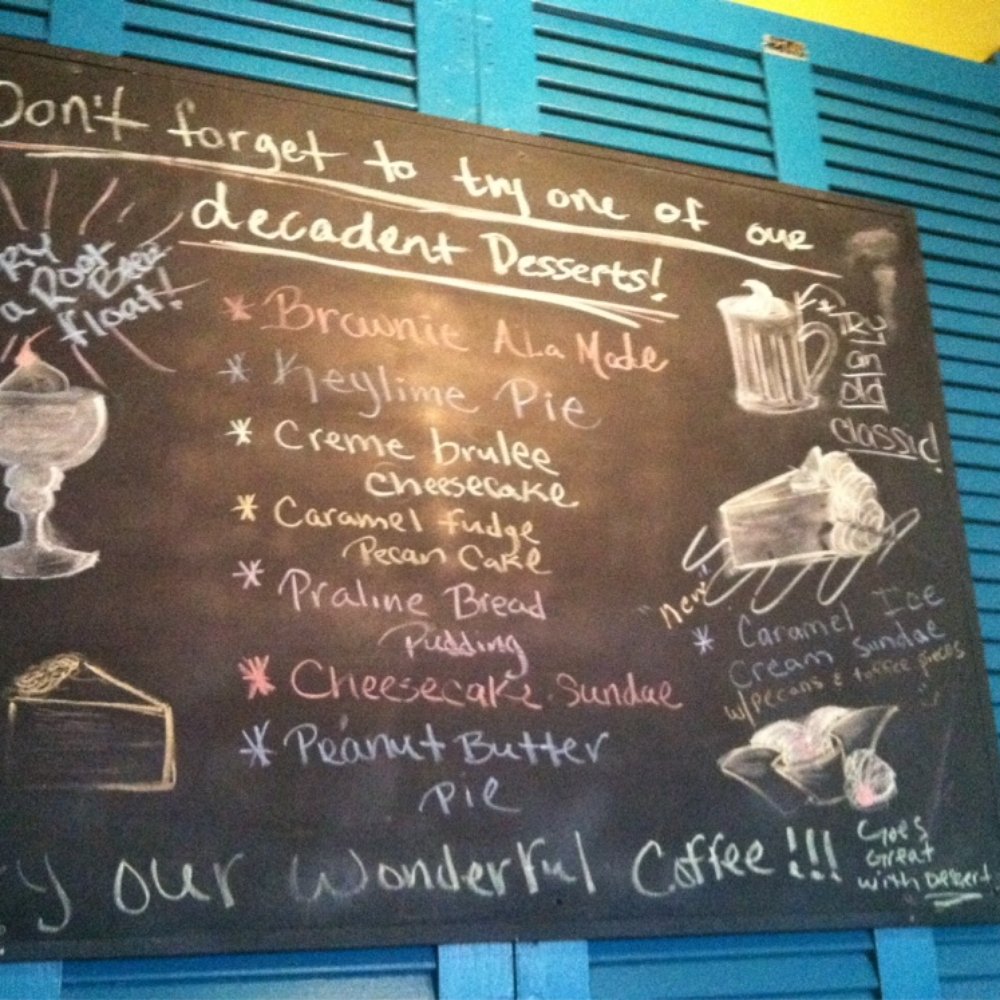 Don't forget to try one of our
decadent Desserts!
a Root Beer
float!
* Brownie ALa Mode
* Keylime Pie
* Creme brulee
Cheesecake
* Caramel fudge
Pecan Cake
* Praline Bread
Pudding
* Cheesecake Sundae
* Peanut Butter
Pie
classic!
"new"
* Caramel Ice
Cream Sundae
w/pecans & toffee pieces
our Wonderful Coffee!!!
Goes
Great
with Dessert